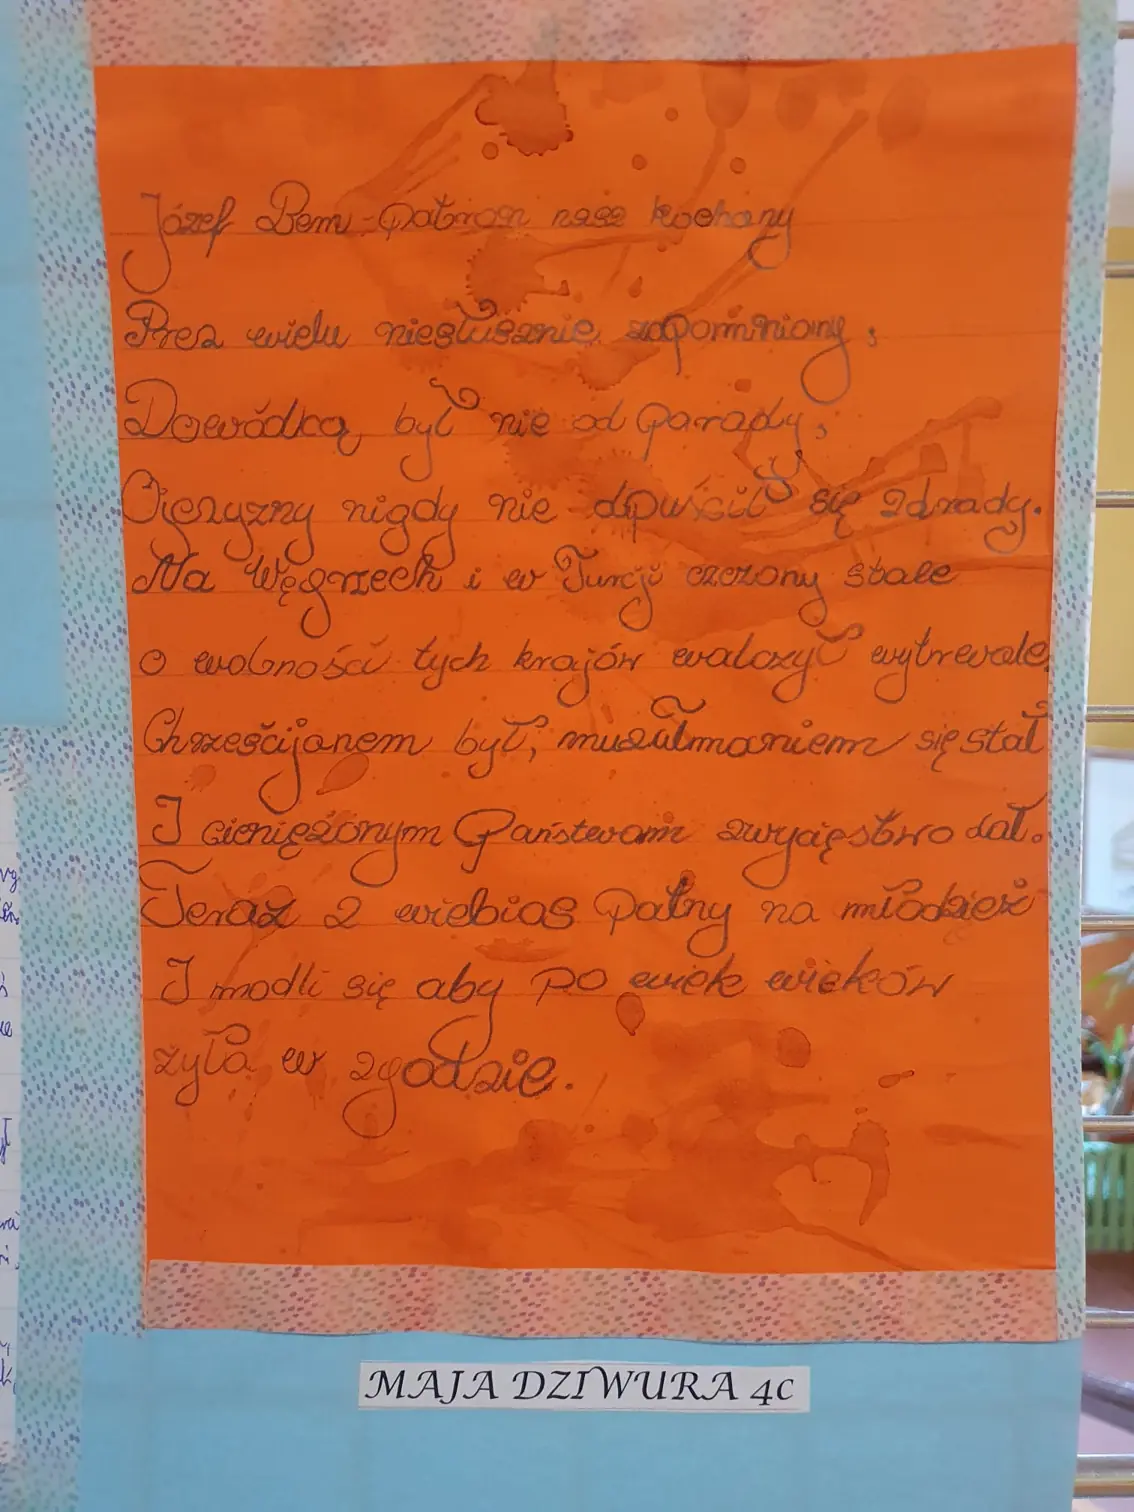 Józef Bem-patron nasz kochany
Prez wielu niesłusznie zapomniany,
Dowódcą był nie od parady,
Ojczyzny nigdy nie dpuścił się zdrady.
Na Węgrzech i w Turcji czczony stale
o wolności tych krajów walczył wytrwale
Chrześcijanem był, muzułmaniem się stał
I ciemiężonym Państwom zwycięstwo dał.
Teraz z wiebios patrzy na młodzież
I modli się aby po wiek wieków
żyła w zgodzie.
MAJA DZIWURA 4c